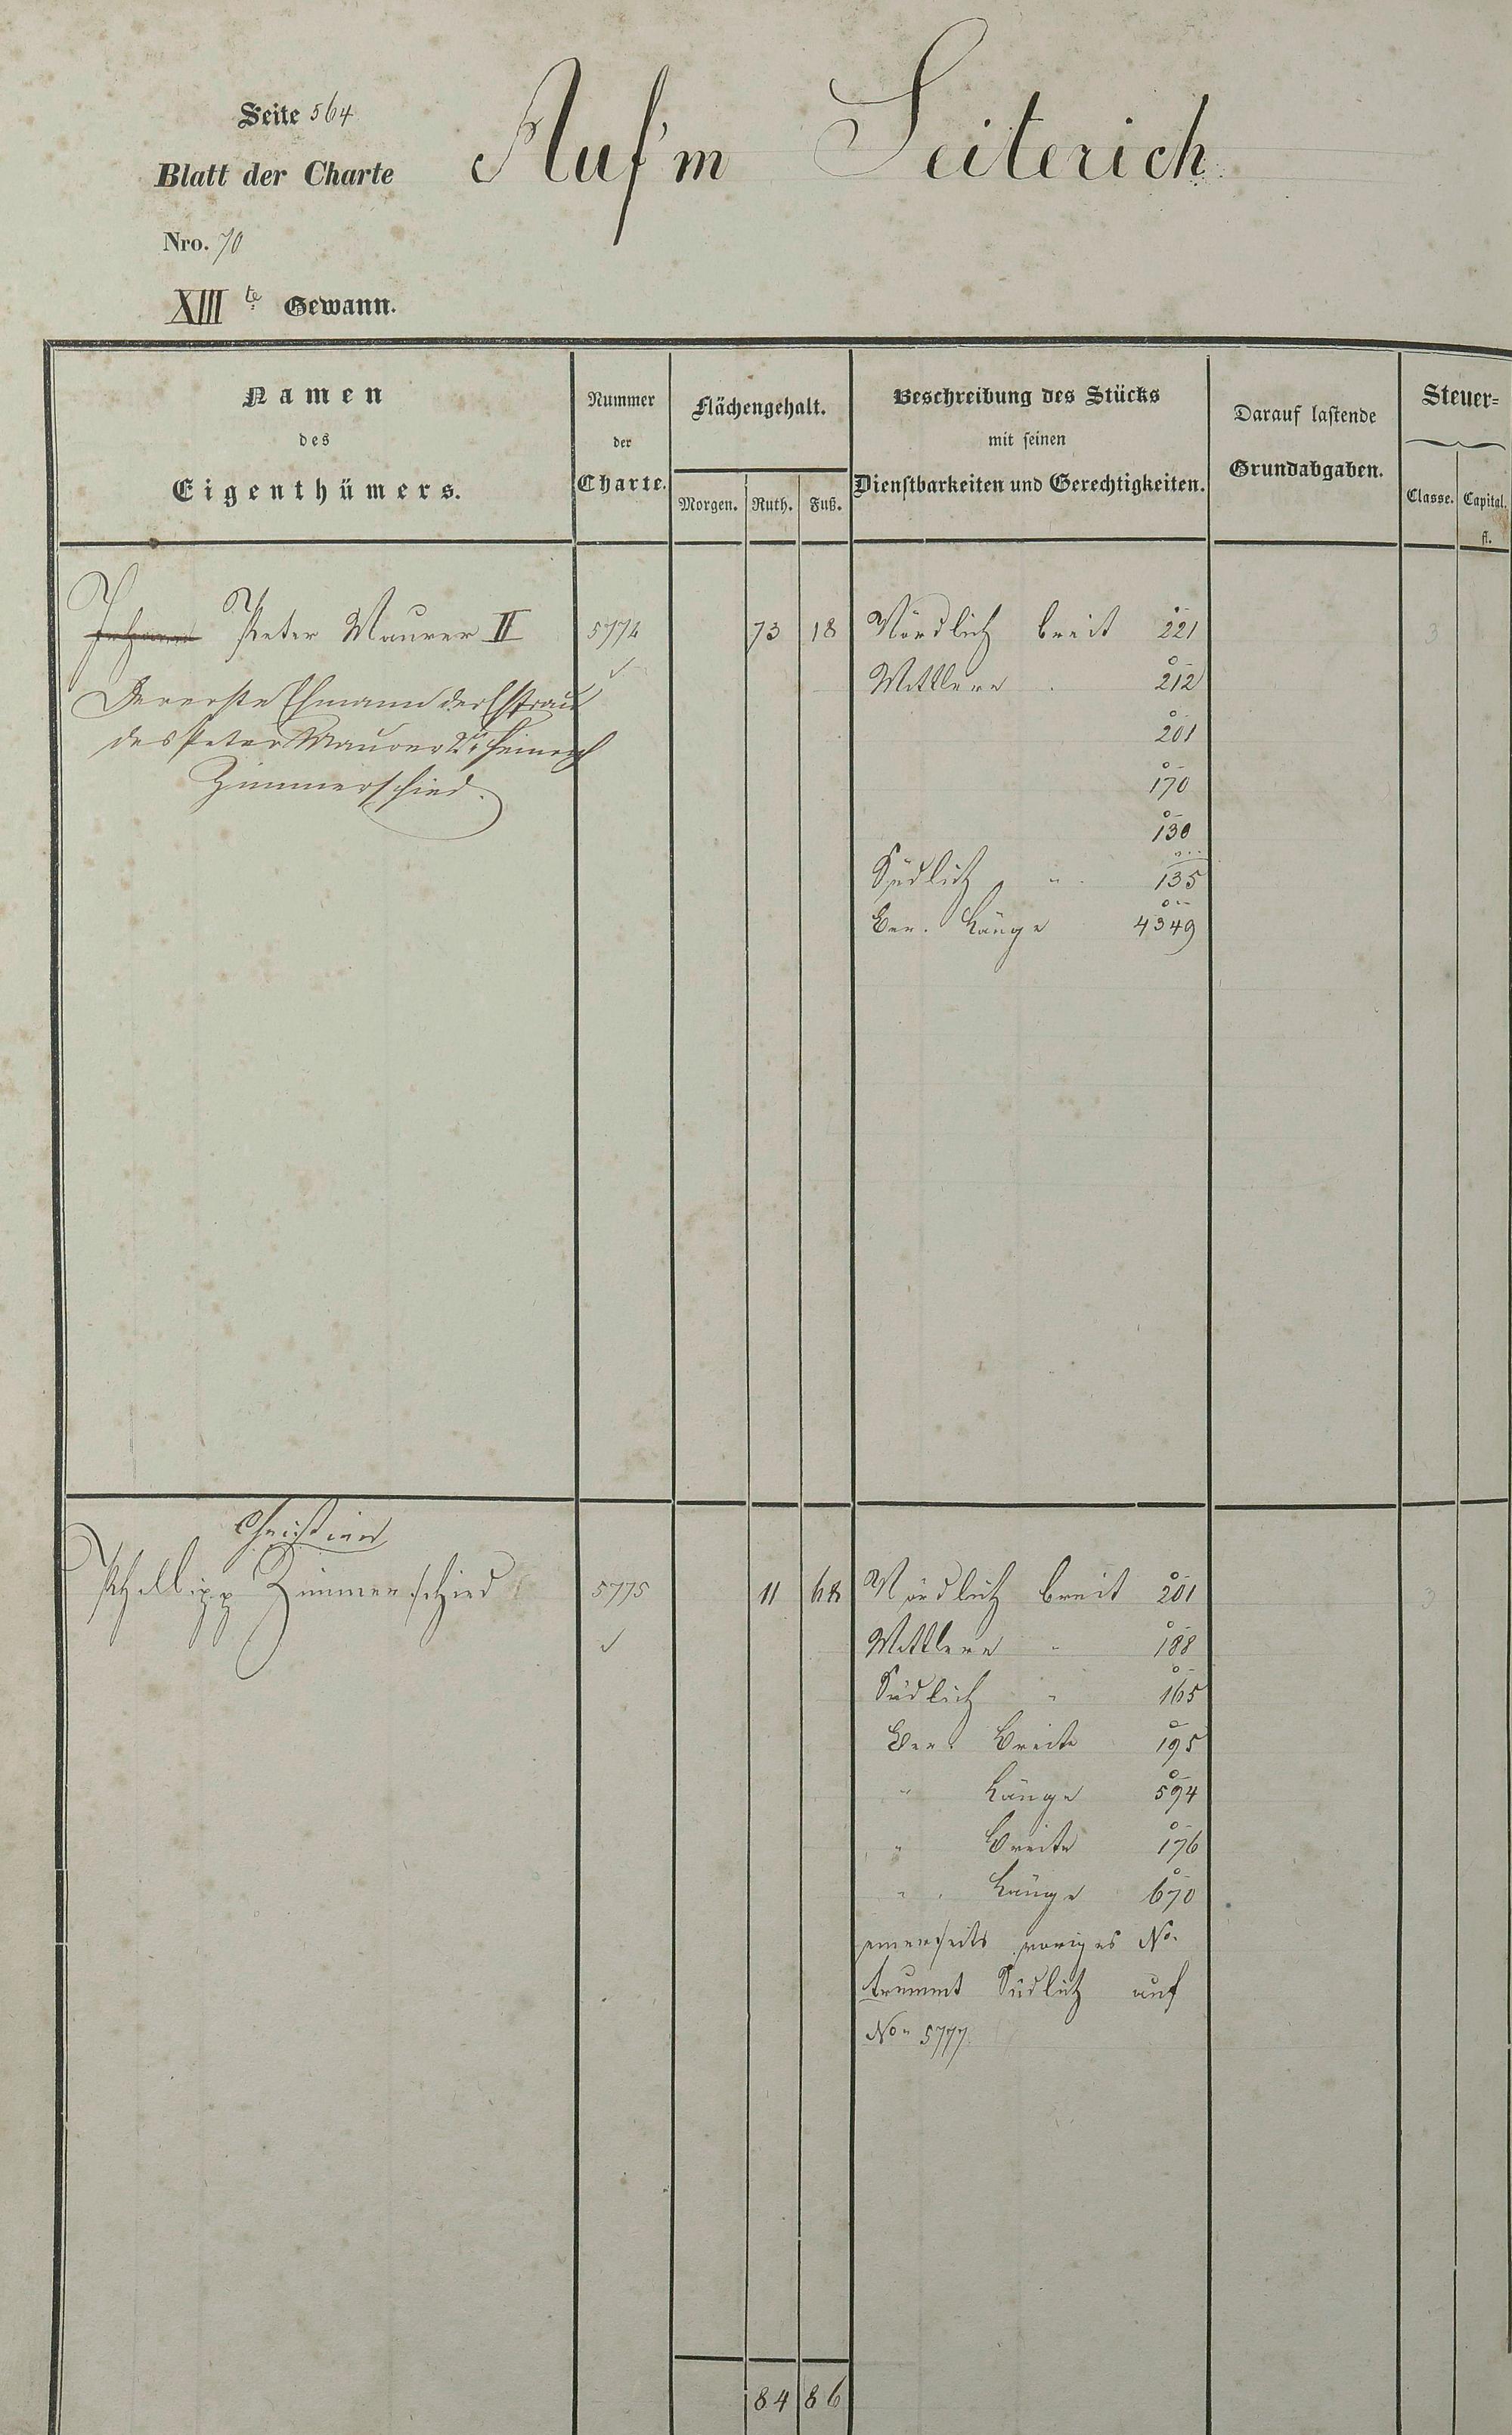 Seite 564
Auf'm Seiterich
Blatt der Charte
Nro. 70
XIII te Gewann.
Namen
des
Eigenthümers.
Nummer
der
Charte.
Flächengehalt.
Morgen. Ruth. Fuß.
Beschreibung des Stücks
mit seinen
Dienstbarkeiten und Gerechtigkeiten.
Darauf lastende
Grundabgaben.
Steuer-
Classe. Capital.
fl.
Johann Peter Maurer II 5774 73 18 Nördlich breit 221 3
Der erste Ehmann der Ehfrau
des Peter Maurer 2r Heinrich
Zimmerschied.
Mittlere 212
201
170
130
Südlich " 135
Ber. Länge 4349
Christian
Phillipp Zimmerschied 5775 11 68 Nördlich breit 201 3
Mittlere " 188
Südlich " 165
Ber. Breite 195
" Länge 594
" Breite 176
" Länge 670
einerseits voriges No.
trummt Südlich auf
No. 5777.
84 86